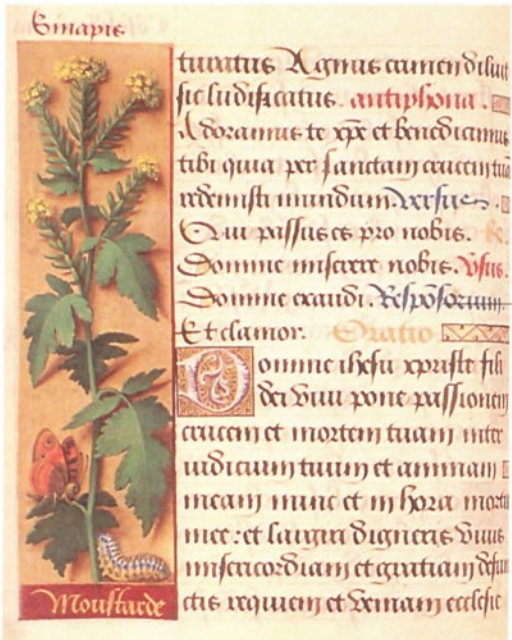 Sinapis
turatus Agnus crimen diluit
sic ludificatus. antiphona.
Adoramus te xpe et benedicimus
tibi quia per sanctam crucem tuā
redemisti mundum. versus.
Qui passus es pro nobis.
Domine miserere nobis. Vsus.
Domine exaudi. Responsorium.
Et clamor. Oratio
Domine ihesu xpriste fili
dei viui pone passionem
crucem et mortem tuam inter
iudicium tuum et animam
meam nunc et in hora mortis
mee: et largiri digneris viuis
misericordiam et gratiam defun
ctis requiem et veniam ecclesie
Moustarde